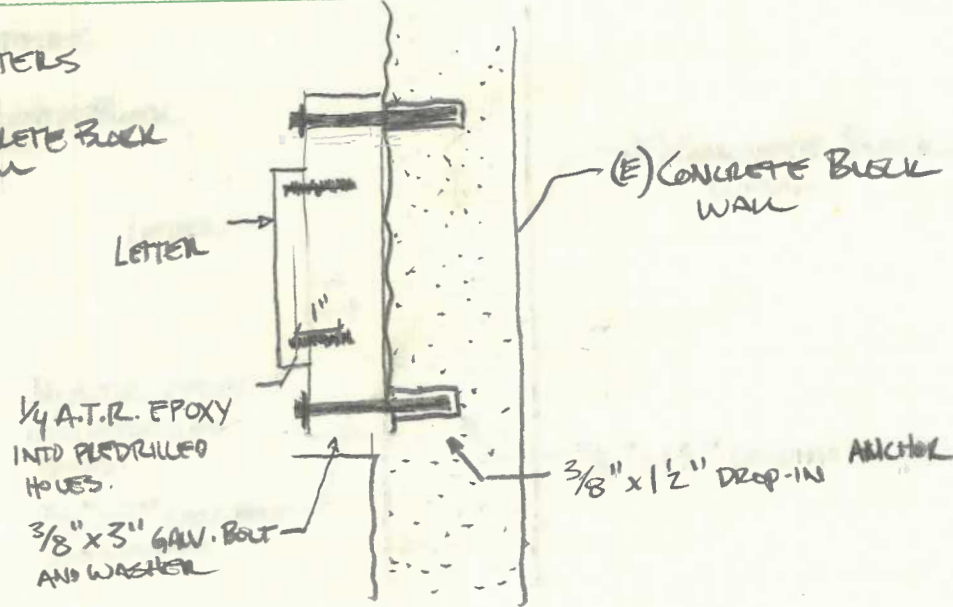 TERS
RETE BLOCK
LETTER
(E) CONCRETE BLOCK
WALL
1"
1/4 A.T.R. EPOXY
INTO PREDRILLED
HOLES.
3/8" x 3" GALV. BOLT
AND WASHER
3/8" x 1 1/2" DROP-IN ANCHOR